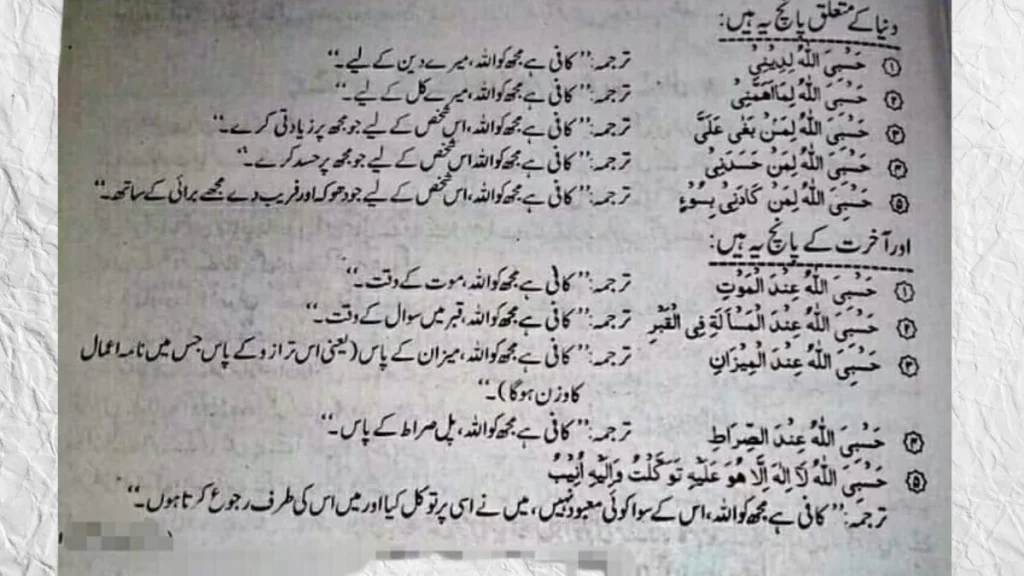 دنیا کے متعلق پانچ یہ ہیں:
① حَسْبِیَ اللّٰهُ لِدِیْنِیْ ترجمہ: ’’کافی ہے مجھ کو اللہ، میرے دین کے لیے۔‘‘
② حَسْبِیَ اللّٰهُ لِمَا اَهَمَّنِیْ ترجمہ: ’’کافی ہے مجھ کو اللہ، میرے کل کے لیے۔‘‘
③ حَسْبِیَ اللّٰهُ لِمَنْ بَغٰی عَلَیَّ ترجمہ: ’’کافی ہے مجھ کو اللہ، اس شخص کے لیے جو مجھ پر زیادتی کرے۔‘‘
④ حَسْبِیَ اللّٰهُ لِمَنْ حَسَدَنِیْ ترجمہ: ’’کافی ہے مجھ کو اللہ اس شخص کے لیے جو مجھ پر حسد کرے۔‘‘
⑤ حَسْبِیَ اللّٰهُ لِمَنْ کَادَنِیْ بِسُوْءٍ ترجمہ: ’’کافی ہے مجھ کو اللہ، اس شخص کے لیے جو دھوکہ اور فریب دے مجھے برائی کے ساتھ۔‘‘
اور آخرت کے پانچ یہ ہیں:
① حَسْبِیَ اللّٰهُ عِنْدَ الْمَوْتِ ترجمہ: ’’کافی ہے مجھ کو اللہ، موت کے وقت۔‘‘
② حَسْبِیَ اللّٰهُ عِنْدَ الْمَسْاَلَةِ فِی الْقَبْرِ ترجمہ: ’’کافی ہے مجھ کو اللہ، قبر میں سوال کے وقت۔‘‘
③ حَسْبِیَ اللّٰهُ عِنْدَ الْمِیْزَانِ ترجمہ: ’’کافی ہے مجھ کو اللہ، میزان کے پاس (یعنی اس ترازو کے پاس جس میں نامہ اعمال
کا وزن ہوگا)۔‘‘
④ حَسْبِیَ اللّٰهُ عِنْدَ الصِّرَاطِ ترجمہ: ’’کافی ہے مجھ کو اللہ، پل صراط کے پاس۔‘‘
⑤ حَسْبِیَ اللّٰهُ لَا اِلٰهَ اِلَّا هُوَ عَلَیْهِ تَوَکَّلْتُ وَاِلَیْهِ اُنِیْبُ
ترجمہ: ’’کافی ہے مجھ کو اللہ، اس کے سوا کوئی معبود نہیں، میں نے اسی پر توکل کیا اور میں اس کی طرف رجوع کرتا ہوں۔‘‘